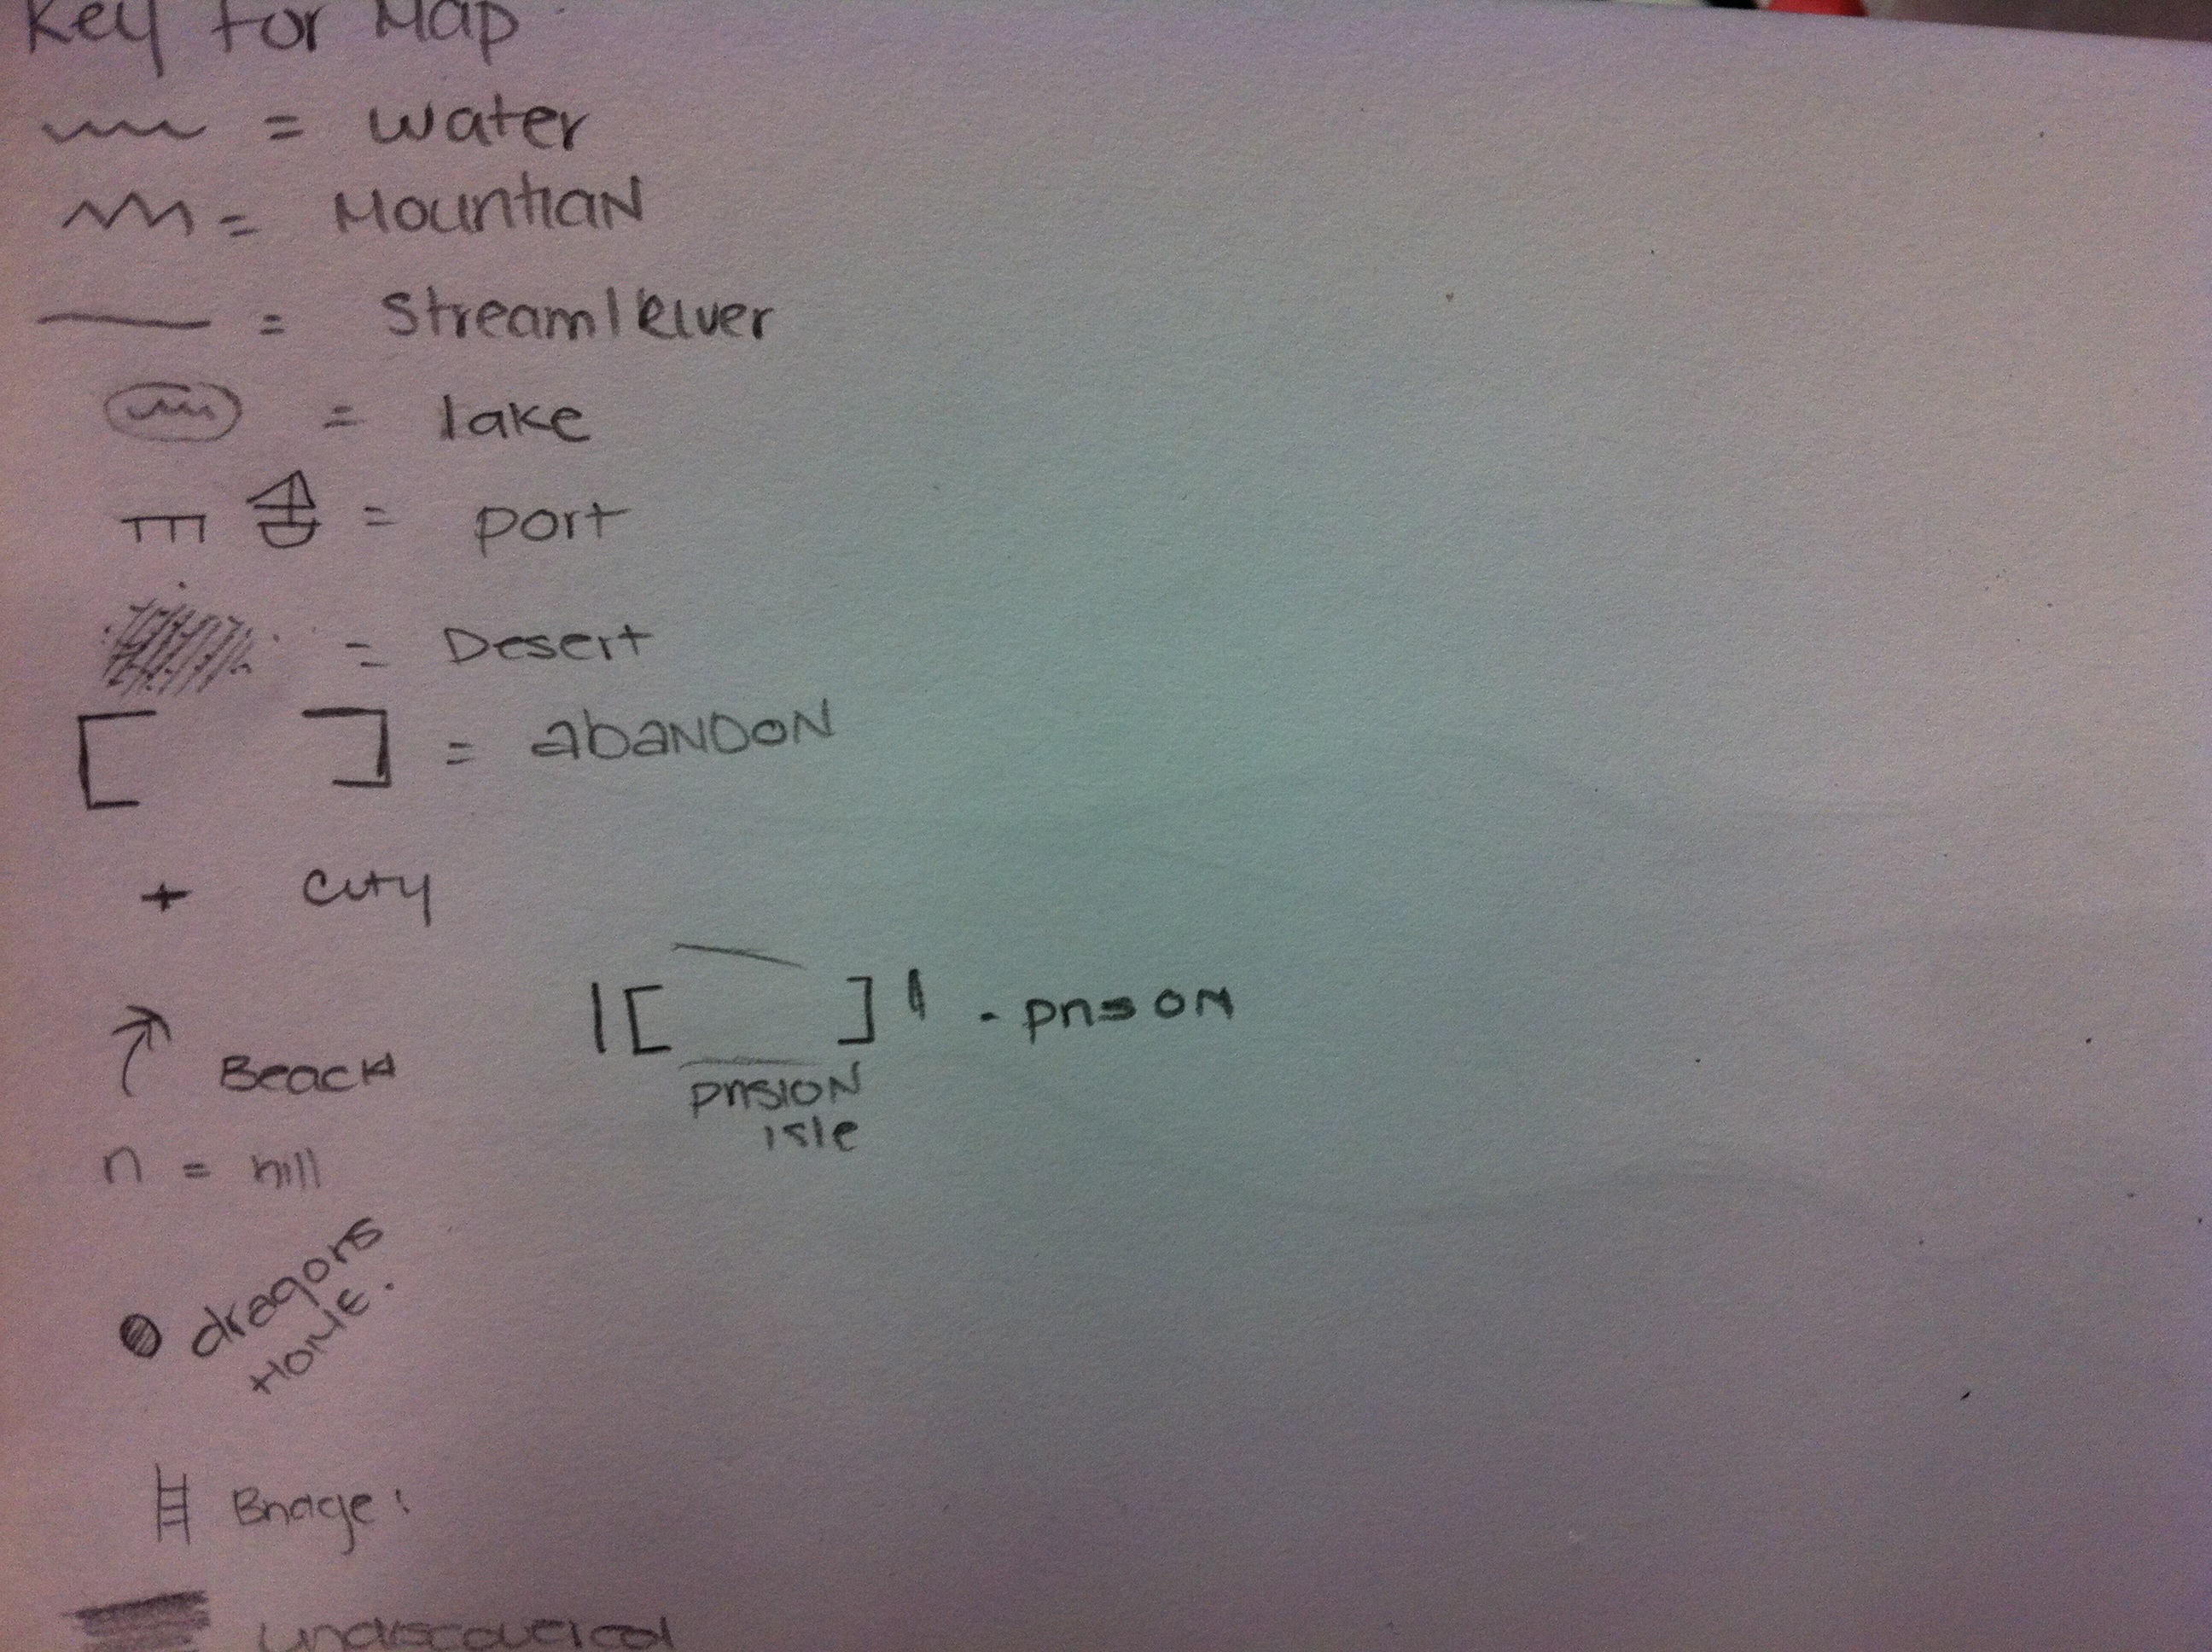 Key for Map
= water
= MountiaN
= Stream/River
= lake
= port
= Desert
[ ] = abaNDON
+ City
|[ ]| - prisoN
prisioN
isle
BeacH
n = hill
dragons
HOME.
Bridge:
undiscovered